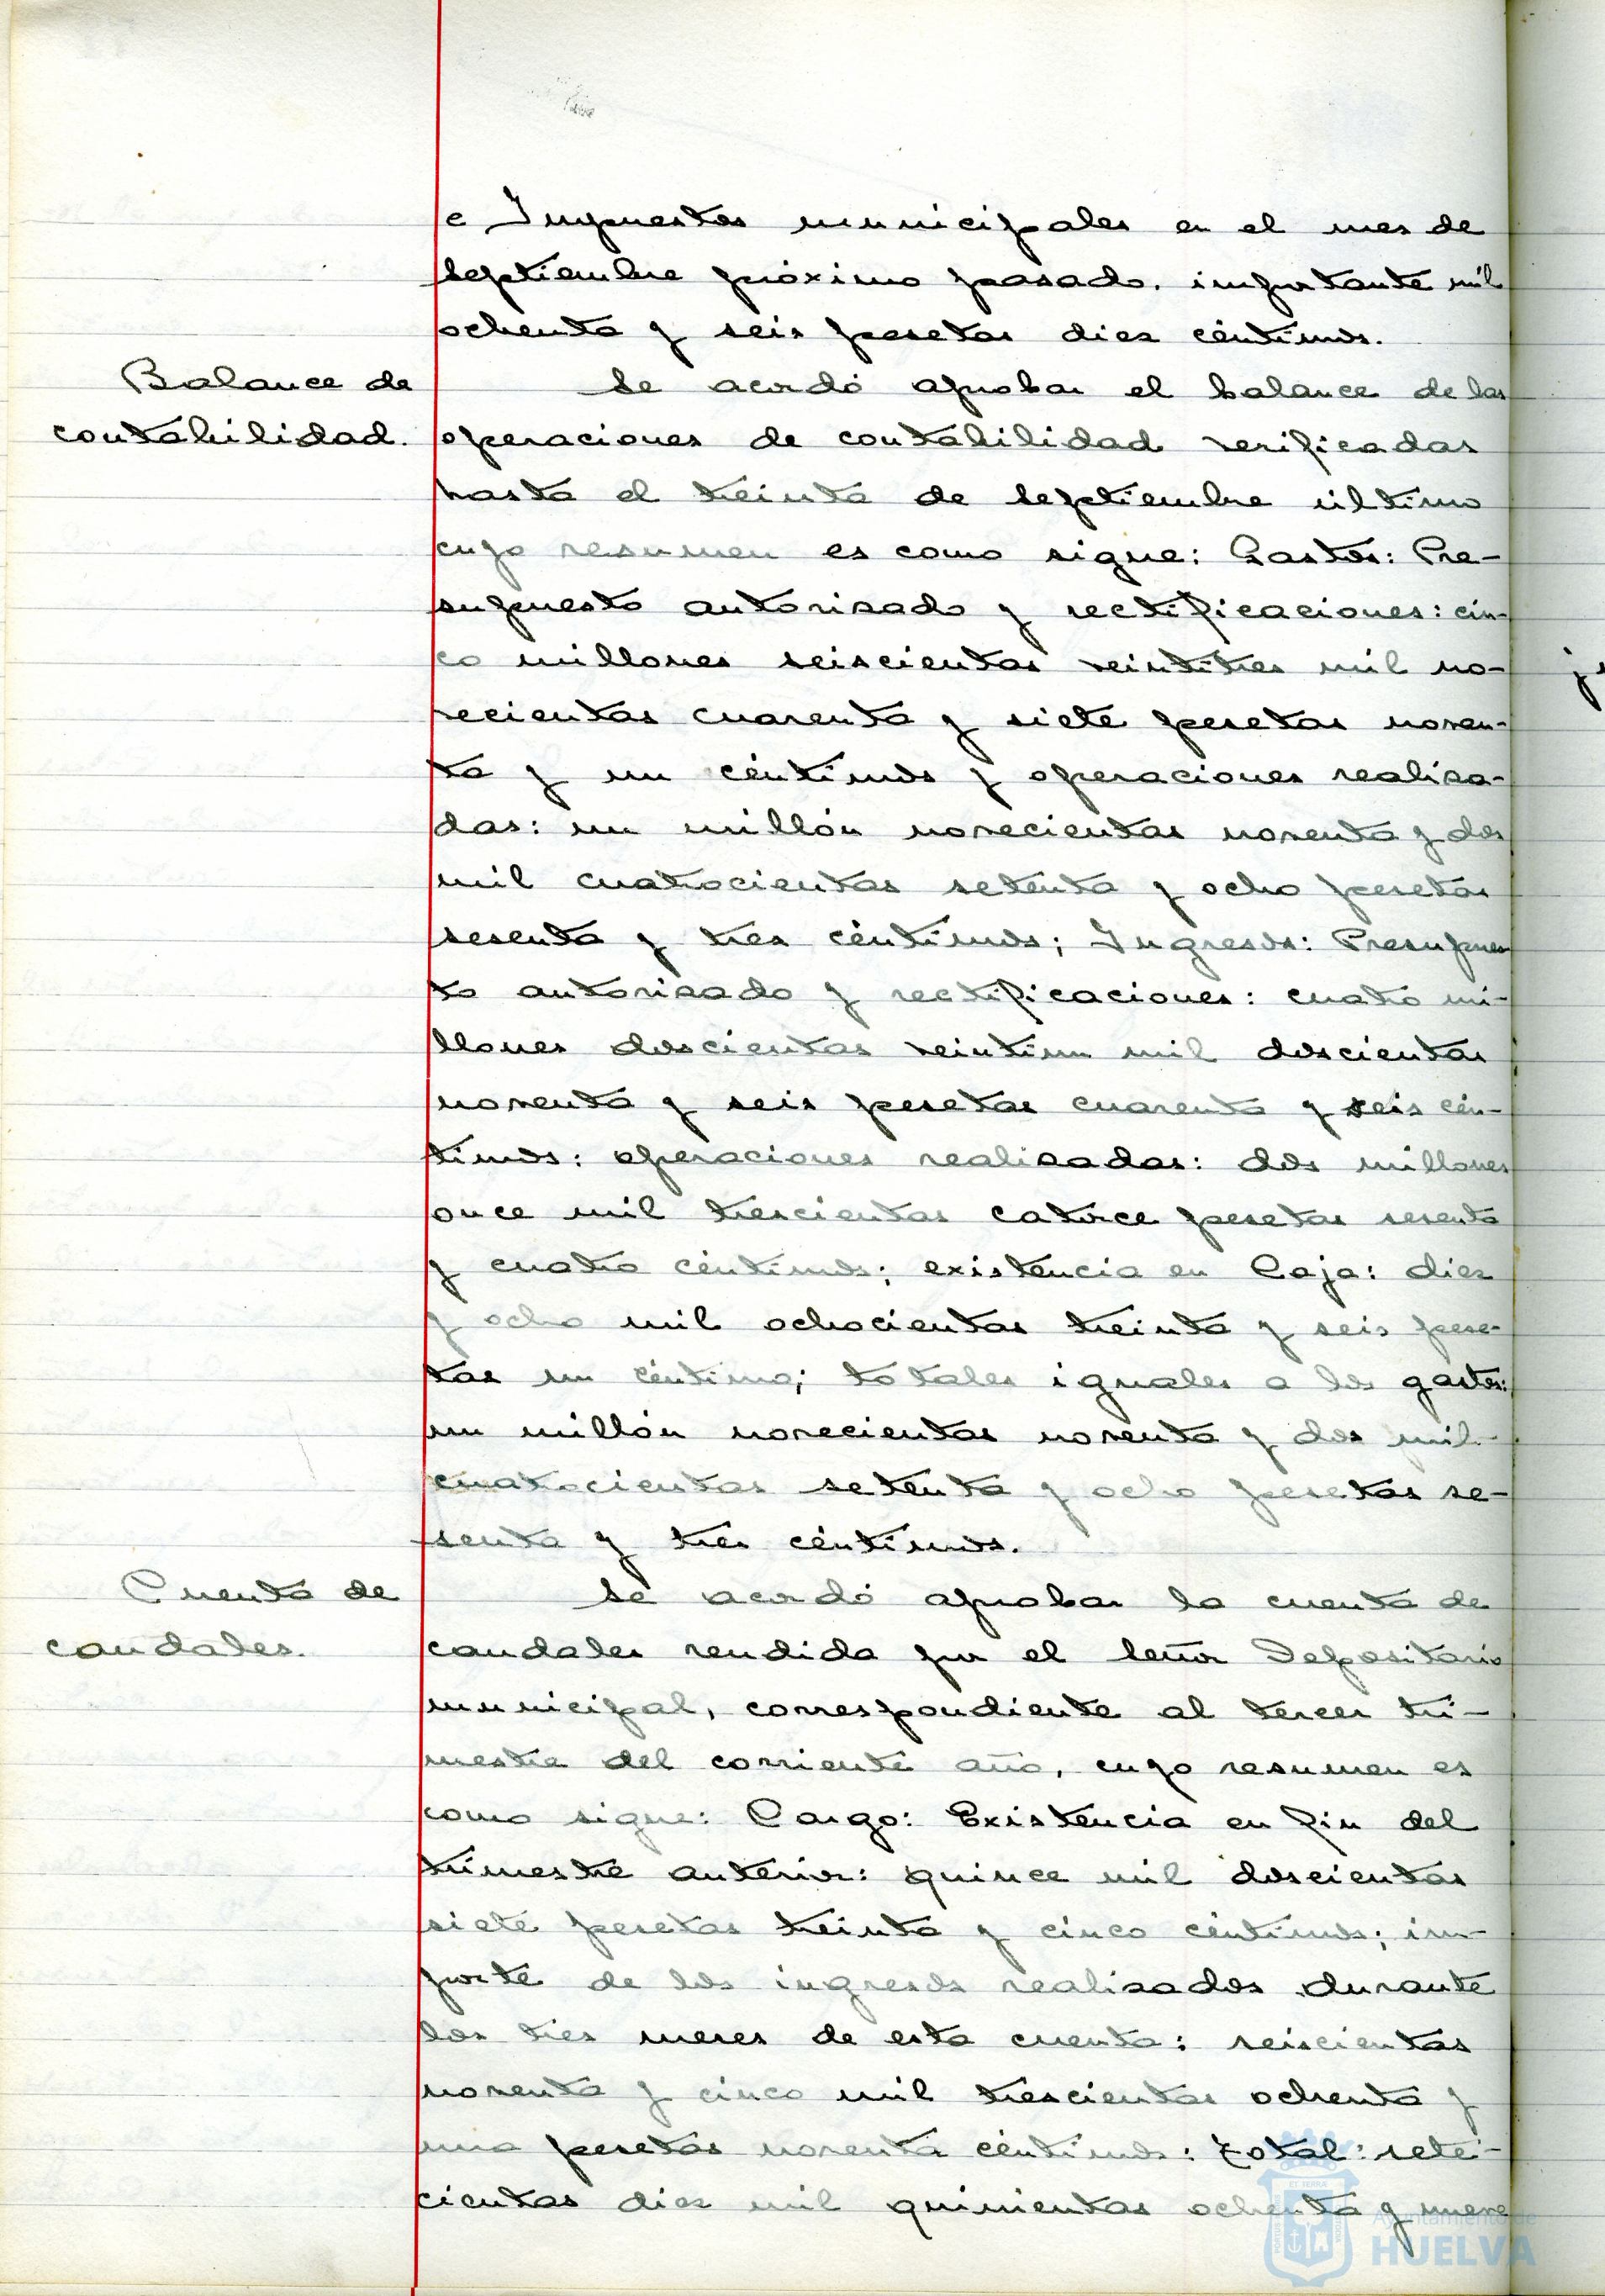 e Impuestos municipales en el mes de
Septiembre próximo pasado, importante mil
ochenta y seis pesetas diez céntimos.
Balance de
contabilidad.
Se acordó aprobar el balance de las
operaciones de contabilidad verificadas
hasta el treinta de Septiembre último
cuyo resumen es como sigue: Gastos: Pre-
supuesto autorizado y rectificaciones: cin-
co millones seiscientas veintitres mil no-
vecientas cuarenta y siete pesetas noven-
ta y un céntimos y operaciones realiza-
das: un millón novecientas noventa y dos
mil cuatrocientas setenta y ocho pesetas
sesenta y tres céntimos; Ingresos: Presupues
to autorizado y rectificaciones: cuatro mi-
llones doscientas veintiun mil doscientas
noventa y seis pesetas cuarenta y seis cén-
timos: operaciones realizadas: dos millones
once mil trescientas catorce pesetas sesenta
y cuatro céntimos; existencia en Caja: diez
y ocho mil ochocientas treinta y seis pese-
tas un céntimo; totales iguales a los gastos:
un millón novecientas noventa y dos mil
cuatrocientas setenta y ocho pesetas se-
senta y tres céntimos.
Cuenta de
caudales.
Se acordó aprobar la cuenta de
caudales rendida por el Señor Depositario
municipal, correspondiente al tercer tri-
mestre del corriente año, cuyo resumen es
como sigue: Cargo: Existencia en fin del
trimestre anterior: quince mil doscientas
siete pesetas treinta y cinco céntimos; im-
porte de los ingresos realizados durante
los tres meses de esta cuenta: seiscientas
noventa y cinco mil trescientas ochenta y
una pesetas noventa céntimos: total: sete-
cientas diez mil quinientas ochenta y nueve
Ayuntamiento de
HUELVA